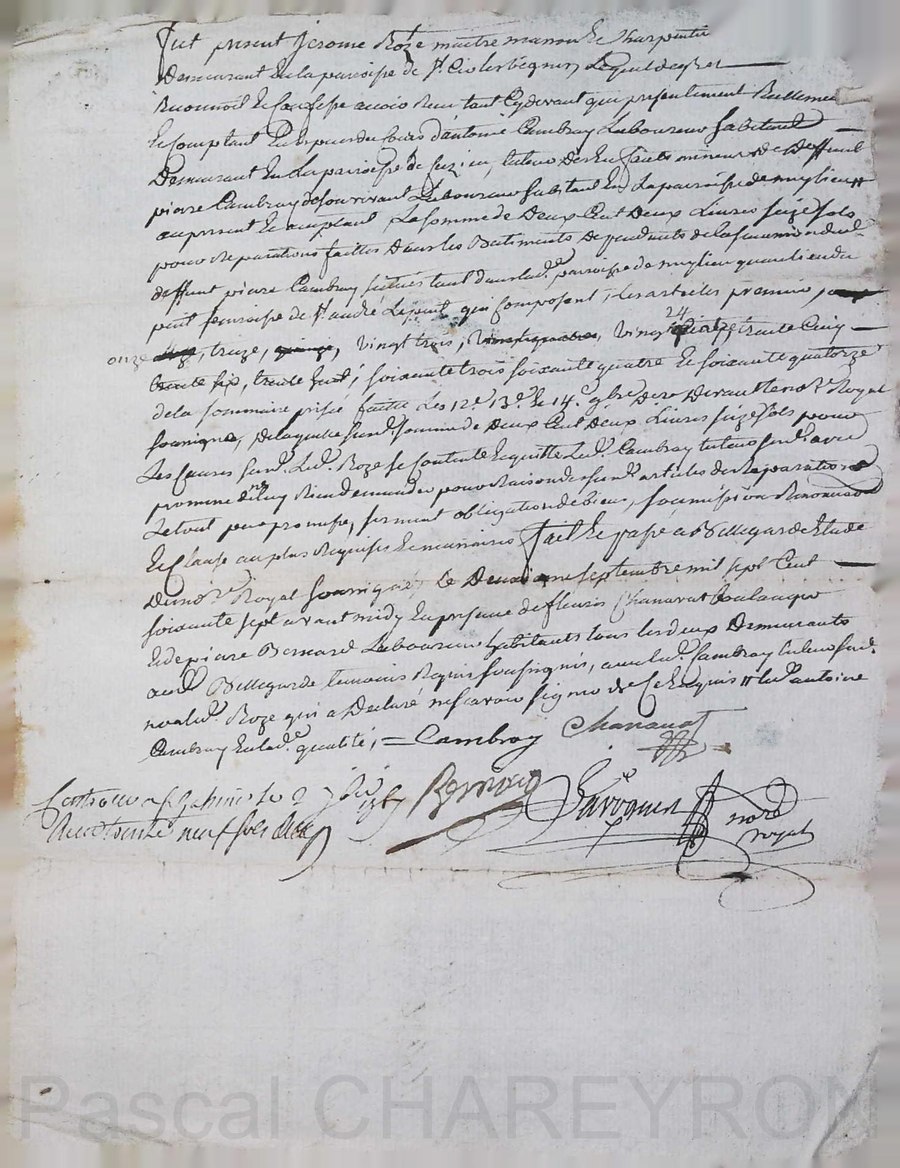 fut present jerome Roze maitre masson Et Charpentier
Demeurant En la paroisse de St Cir les vignes Lequel de gret
Reconnoit Et Confesse avoir Receu tant Cy devant que presentement Reellement
Et Comptant En Especes du Cours d'antoine Cambray Laboureur habitant
Demeurant En La paroisse de tuteur Des Enfants mineurs de Deffunt
piere Cambray de son vivant Laboureur habitant En La paroisse de myzlieu #
au present Et acceptant La somme de Deux Cent Deux Livres seize sols
pour Reparations faittes Dans les Batiments Dependants de la succession dud.
deffunt piere Cambray situés tant dans lad. paroisse de myzlieu qu'en lieu du
petit paroisse de St andré Le puit qui Composent, Les articles premier,
onze, treze, vingt trois, vingt 24 trente Cinq
trente six, trente huit, soixante trois soixante quatre Et soixante quatorze
de la sommaire prisée faitte Les 12e 13e Et 14e 9bre Dernier Devant le no.re Royal
soussigné, De laquelle susd. somme de Deux Cent Deux Livres seize sols pour
Les Causes susd. Led. Roze se Contente Et quitte Led. Cambray tuteur susd. avec
promesse de ne luy Rien demander pour Raison des susd. articles de Reparations
Le tout par promesse, serment obligation de biens, soumissions Renonciations
Et Clauses au plus Requises Et necessaires fait Et passé a Bellegarde Etude
Du no.re Royal soussigné, Le Deuxieme septembre mil sept Cent
soixante sept avant midy En presence de fleury Chanavat Boulanger
Et de piere Bernard Laboureur habitants tous les deux Demeurants
aud. Bellegarde temoins Requis soussignés, avec led. Cambray tuteur susd.
non led. Roze qui a Declaré ne scavoir signer de Ce Enquis # led. antoine
Cambray En lad. qualité, = Cambray Chanavat
Controllé a St Galmier le 2 7bre 1767 Bernard
Receu trente neuf sols nore
royal